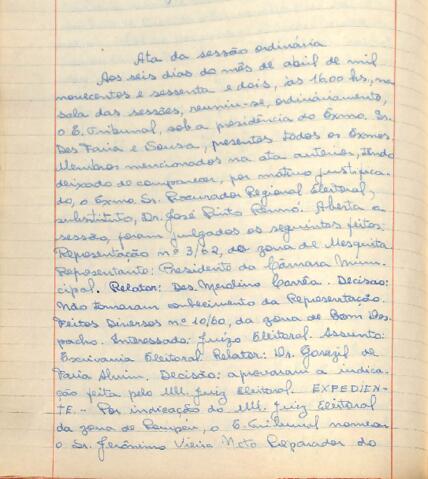 Ata da sessão ordinária
Aos seis dias do mês de abril de mil
novecentos e sessenta e dois, às 16.00 hs., na
sala das sessões, reuniu-se, ordinàriamente,
o E. Tribunal, sob a presidência do Exmo. Sr.
Des. Faria e Sousa, presentes todos os Exmos.
Membros mencionados na ata anterior, tendo
deixado de comparecer, por motivo justifica-
do, o Exmo. Sr. Procurador Regional Eleitoral,
substituto, Dr. José Pinto Rennó. Aberta a
sessão, foram julgados os seguintes feitos:
Representação nº 3/62, da zona de Mesquita
Representante: Presidente da Câmara Muni-
cipal. Relator: Des. Merolino Corrêa. Decisão:
Não tomaram conhecimento da Representação.
Feitos Diversos nº 10/60, da zona de Bom Des-
pacho. Interessado: Juízo Eleitoral. Assunto:
Escrivania Eleitoral. Relator: Dr. Gorazil de
Faria Alvim. Decisão: aprovaram a indica-
ção feita pelo MM. Juiz Eleitoral. EXPEDIEN-
TE. - Por indicação do MM. Juiz Eleitoral
da zona de Pompéu, o E. Tribunal nomeou
o Sr. Jerônimo Vieira Neto Preparador do